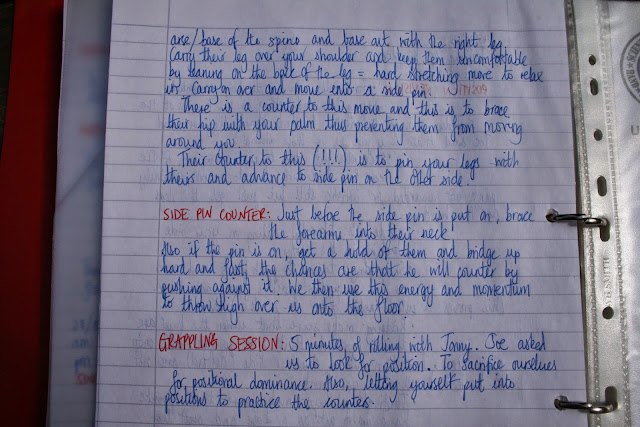 arse/base of the spine and base out with the right leg.
Carry their leg over your shoulder and keep them uncomfortable
by leaning on the back of the leg = hard stretching move to relax
in. Carry on over and move into a side pin.
There is a counter to this move and this is to brace
their hip with your palm thus preventing them from moving
around you
Their counter to this (!!!) is to pin your legs with
theirs and advance to side pin on the other side.
SIDE PIN COUNTER: Just before the side pin is put on, brace
the forearms into their neck
Also if the pin is on, get a hold of them and bridge up
hard and fast, the chances are that he will counter by
pushing against it. We then use this energy and momentum
to throw high over us onto the floor.
GRAPPLING SESSION: 5 minutes of rolling with Jonny. Joe asked
us to look for position. To sacrifice ourselves
for positional dominance. Also, letting yourself put into
positions to practice the counters.